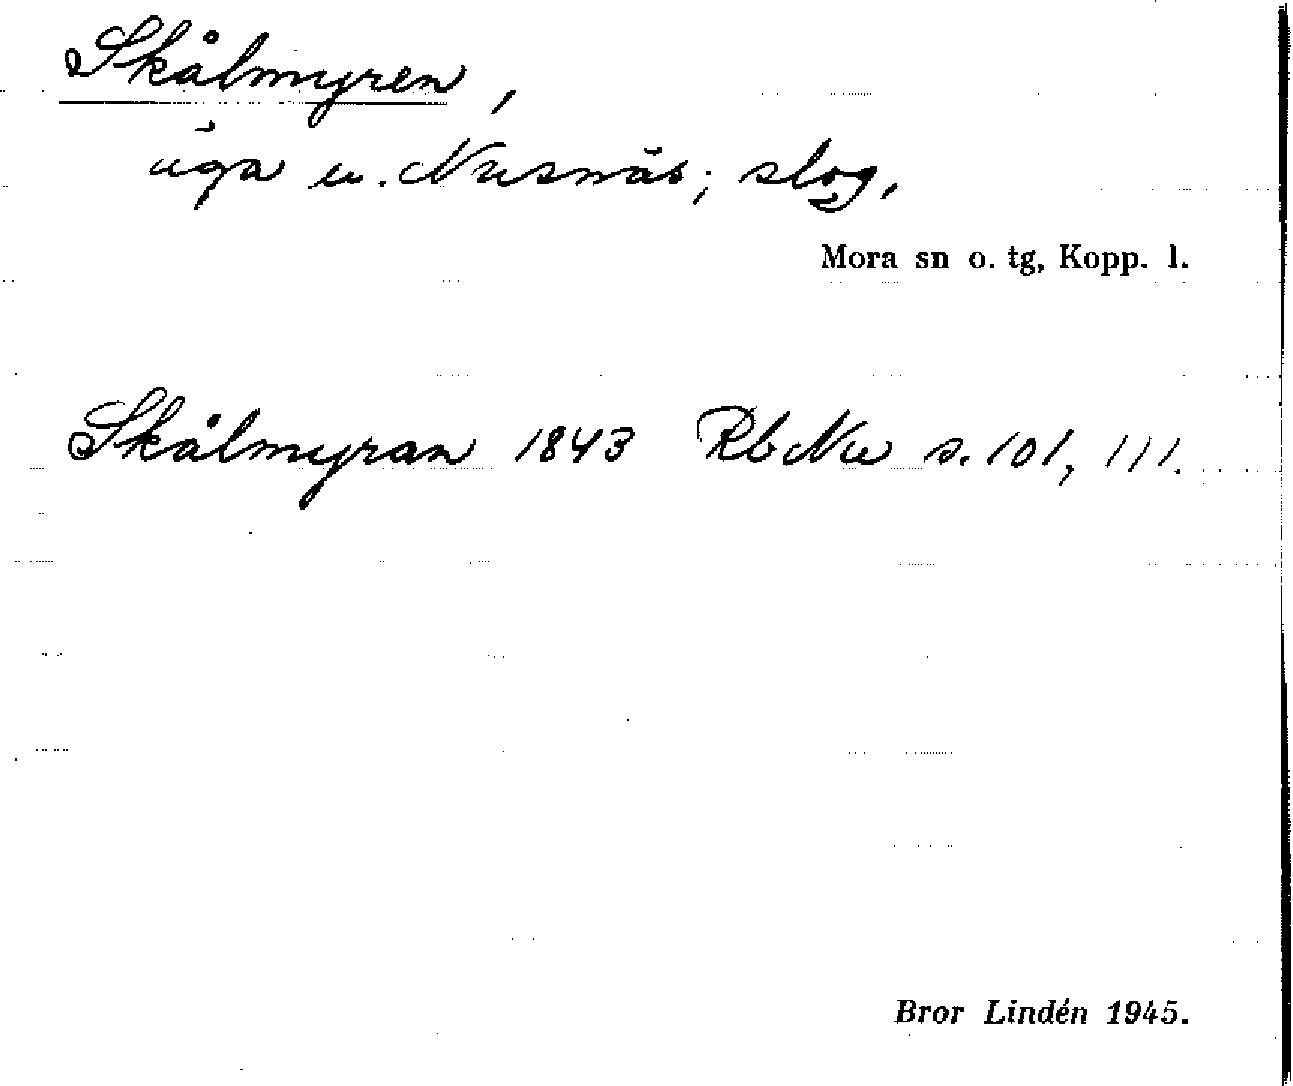 Skålmyren,
äga u. Nusnäs; slog.
Mora sn o. tg, Kopp. l.
Skålmyran 1843 Rb Nu s. 101, 111.
Bror Lindén 1945.